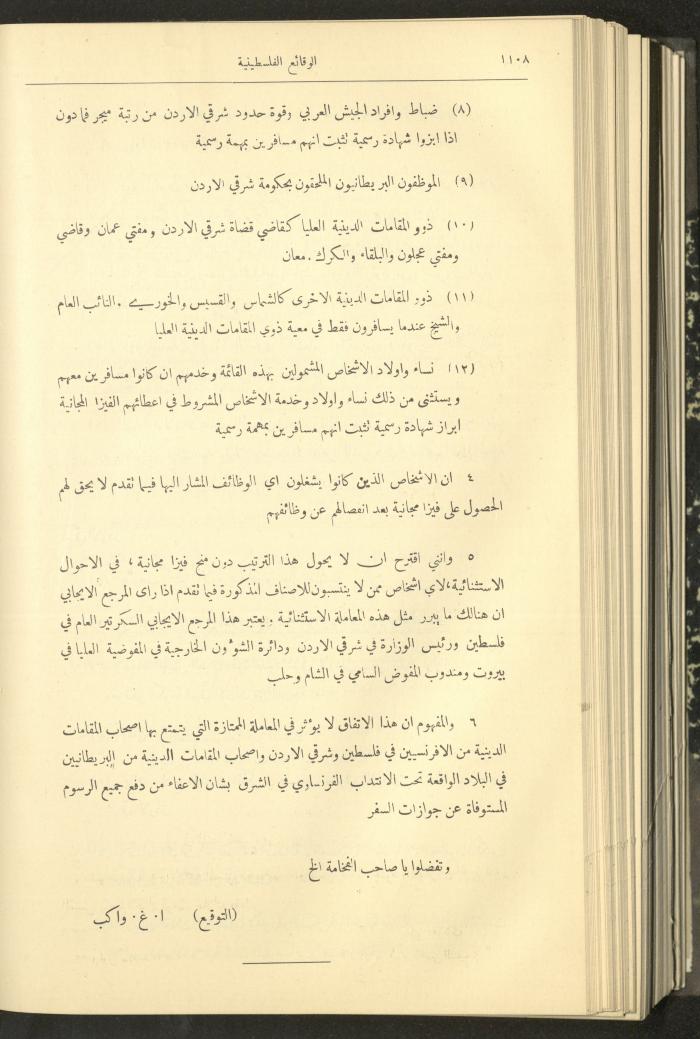 ١١٠٨
الوقائع الفلسطينية
(٨) ضباط وافراد الجيش العربي وقوة حدود شرقي الاردن من رتبة ميجر فما دون
اذا ابرزوا شهادة رسمية تثبت انهم مسافرين بمهمة رسمية
(٩) الموظفون البريطانيون الملحقون بحكومة شرقي الاردن
(١٠) ذوو المقامات الدينية العليا كقاضي قضاة شرقي الاردن ومفتي عمان وقاضي
ومفتي عجلون والبلقاء والكرك .معان
(١١) ذوو المقامات الدينية الاخرى كالشماس والقسيس والخوري .النائب العام
والشيخ عندما يسافرون فقط في معية ذوي المقامات الدينية العليا
(١٢) نساء واولاد الاشخاص المشمولين بهذه القائمة وخدمهم ان كانوا مسافرين معهم
ويستثنى من ذلك نساء واولاد وخدمة الاشخاص المشروط في اعطائهم الفيزا المجانية
ابراز شهادة رسمية تثبت انهم مسافرين بمهمة رسمية
٤ ان الاشخاص الذين كانوا يشغلون اي الوظائف المشار اليها فيما تقدم لا يحق لهم
الحصول على فيزا مجانية بعد انفصالهم عن وظائفهم
٥ وانني اقترح ان لا يحول هذا الترتيب دون منح فيزا مجانية ، في الاحوال
الاستثنائية،لاي اشخاص ممن لا ينتسبون للاصناف المذكورة فيما تقدم اذا راى المرجع الايجابي
ان هنالك ما يبرر مثل هذه المعاملة الاستثنائية . ويعتبر هذا المرجع الايجابي السكرتير العام في
فلسطين ورئيس الوزارة في شرقي الاردن ودائرة الشؤون الخارجية في المفوضية العليا في
بيروت ومندوب المفوض السامي في الشام وحلب
٦ والمفهوم ان هذا الاتفاق لا يؤثر في المعاملة الممتازة التي يتمتع بها اصحاب المقامات
الدينية من الافرنسيين في فلسطين وشرقي الاردن واصحاب المقامات الدينية من البريطانيين
في البلاد الواقعة تحت الانتداب الفرنساوي في الشرق بشان الاعفاء من دفع جميع الرسوم
المستوفاة عن جوازات السفر
وتفضلوا يا صاحب الفخامة الخ
(التوقيع) ا٠ غ٠ واكب